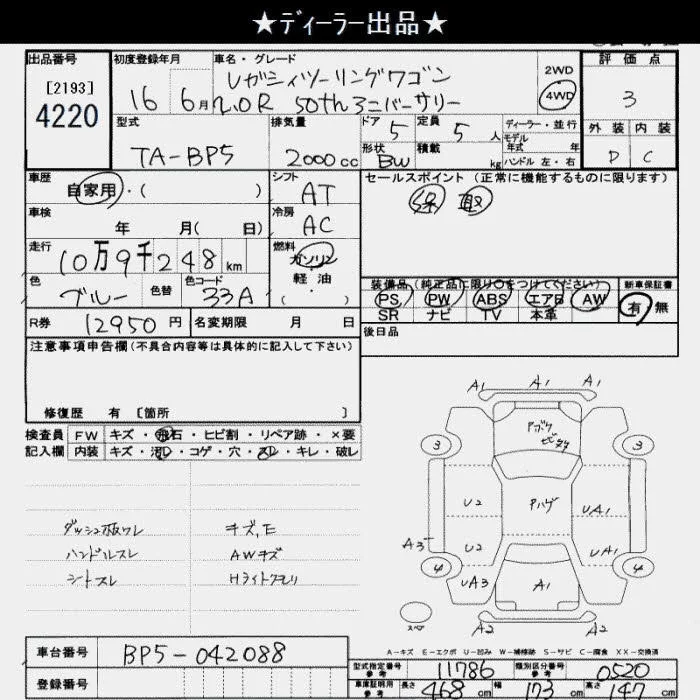 ★ディーラー出品★
出品番号
[2193]
4220
初度登録年月
16 6月
車名・グレード
レガシィツーリングワゴン
2.0R 50thアニバーサリー
2WD
4WD
評価点
3
外装 内装
D C
型式
TA-BP5
排気量
2000cc
ドア 5
定員 5人
形状 BW
積載 kg
ディーラー・並行
モデル
年式 年
ハンドル 左・右
車歴
自家用・( )
シフト
AT
セールスポイント (正常に機能するものに限ります)
録 取
車検
年 月( 日)
冷房
AC
走行
10万9千248km
燃料
ガソリン
軽油
( ・ )
色
ブルー
色替
色コード
33A
装備品(純正品に限り○をつけてください)
PS PW ABS エアB AW
SR ナビ TV 本革
新車保証書
有 無
R券 12950円
名変期限 月 日
後日品
注意事項申告欄(不具合内容等は具体的に記入して下さい)
修復歴 有 [箇所 ]
検査員
記入欄
FW キズ・飛石・ヒビ割・リペア跡・×要
内装 キズ・汚レ・コゲ・穴・スレ・キレ・破レ
ダッシュ板ワレ
ハンドルスレ
シートスレ
キズ,E
AWキズ
Hライトクモリ
A1 A1 A1
3 3
U2 アハゲ UA1
A3 U2 UA1
4 UA3 A1 4
スペア
A2 A2
A-キズ E-エクボ U-凹み W-補修跡 S-サビ C-腐食 XX-交換済
車台番号 BP5-042088
登録番号
型式指定番号
参考
11786
類別区分番号
参考
0520
車庫証明用
参考
長さ 468cm
幅 173cm
高さ 147cm